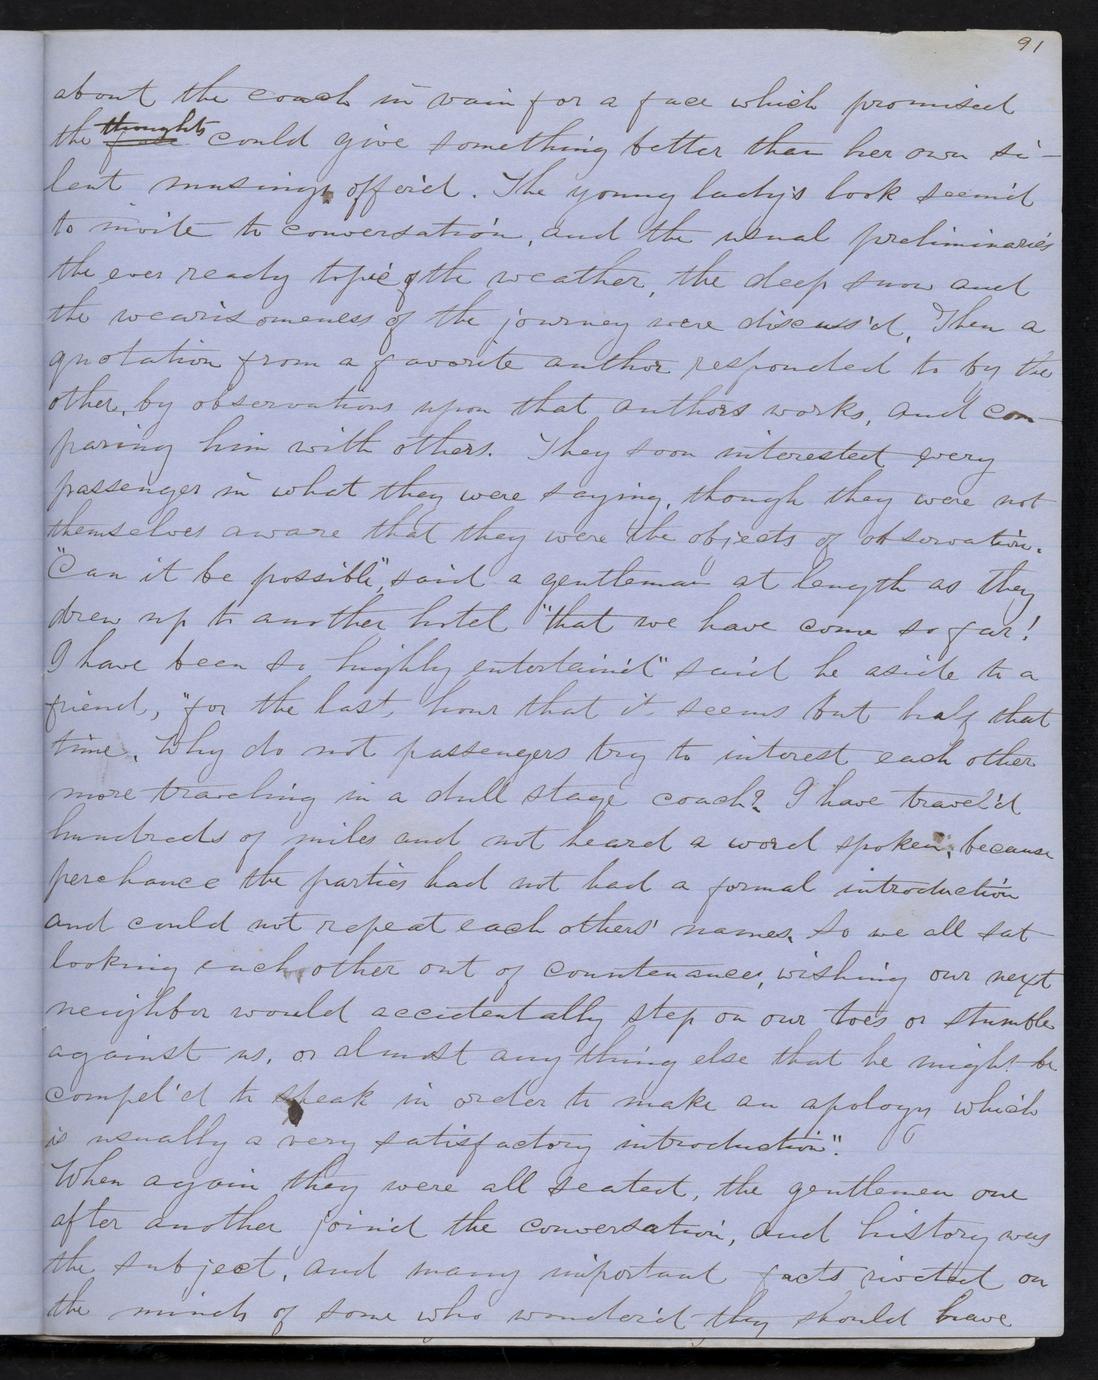 91
about the coach in vain for a face which promised
the thoughts could give something better than her own si-
lent musings offer'd. The young lady's look seem'd
to invite to conversation, and the usual preliminaries
the ever ready topic of the weather, the deep snow and
the wearisomeness of the journey were discuss'd. Then a
quotation from a favorite author responded to by the
other, by observations upon that authors works, and com-
paring him with others. They soon interested every
passenger in what they were saying, though they were not
themselves aware that they were the objects of observation.
"Can it be possible", said a gentleman at length as they
drew up to another hotel "that we have come so far!
I have been so highly entertain'd" said he aside to a
friend, "for the last hour that it seems but half that
time. Why do not passengers try to interest each other
more traveling in a dull stage coach? I have travel'd
hundreds of miles and not heard a word spoken, because
perchance the parties had not had a formal introduction
and could not repeat each others' names. So we all sat
looking each other out of countenance, wishing our next
neighbor would accidentally step on our toes or stumble
against us, or almost any thing else that he might be
compel'd to speak in order to make an apology which
is usually a very satisfactory introduction".
When again they were all seated, the gentlemen one
after another join'd the conversation, and history was
the subject, and many important facts riveted on
the minds of some who wonder'd they should have